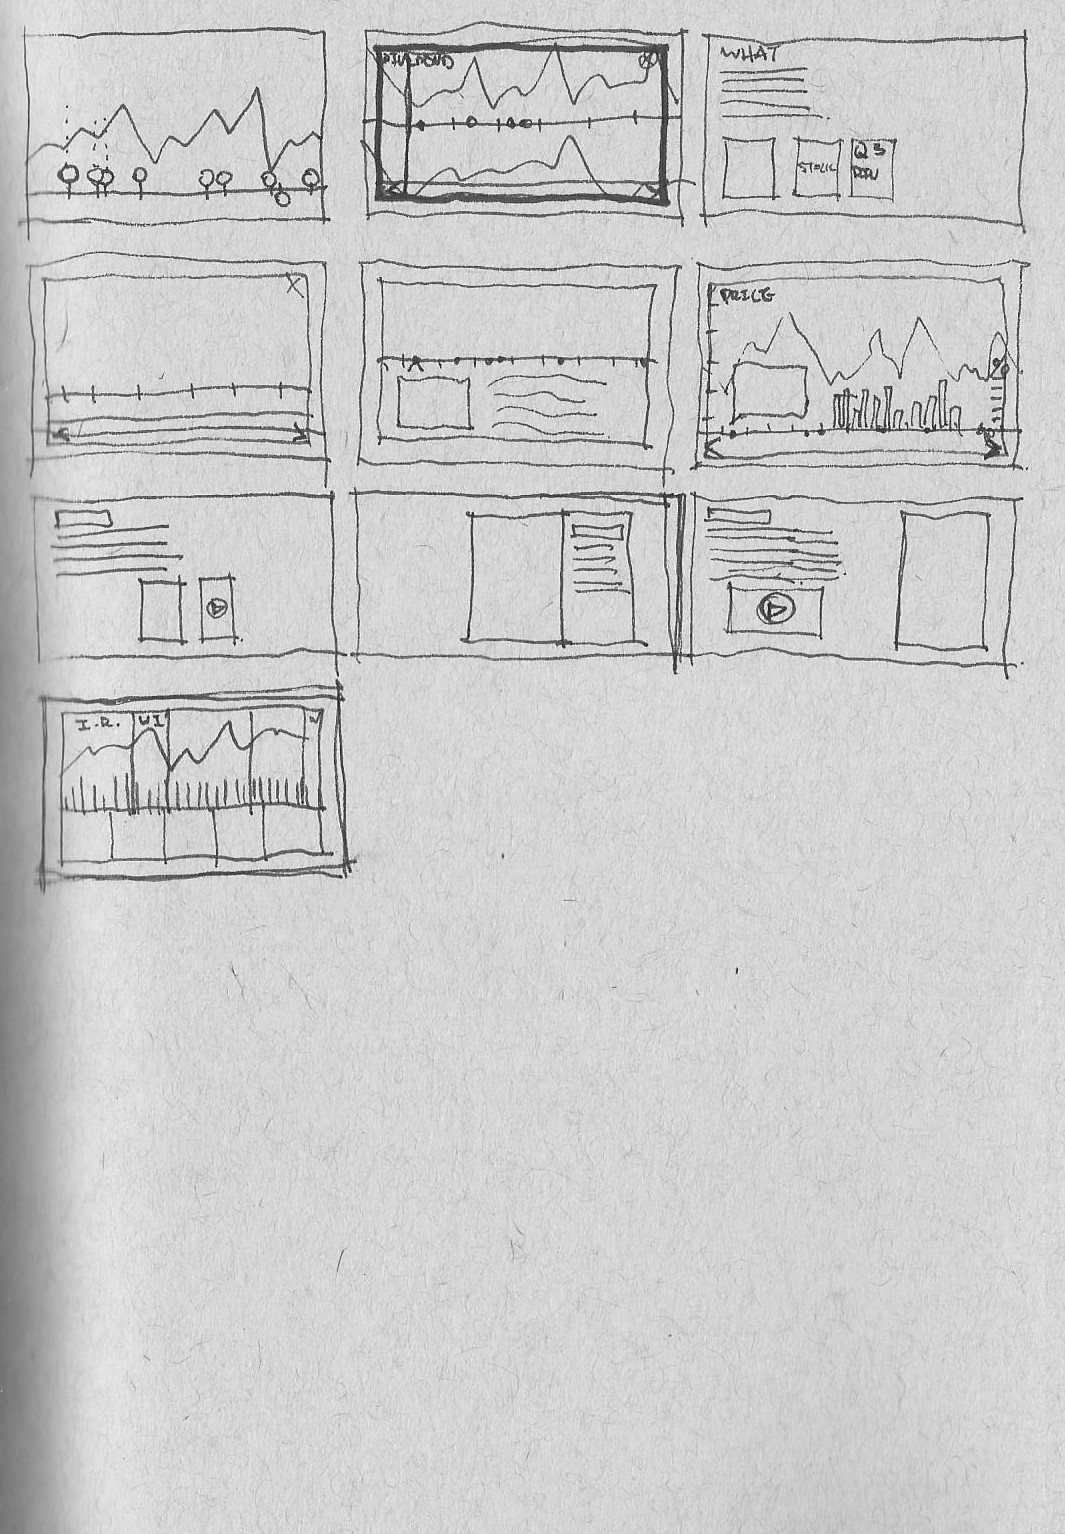 DIVIDEND
WHAT
STOCK
Q3
PRICE
I.R.